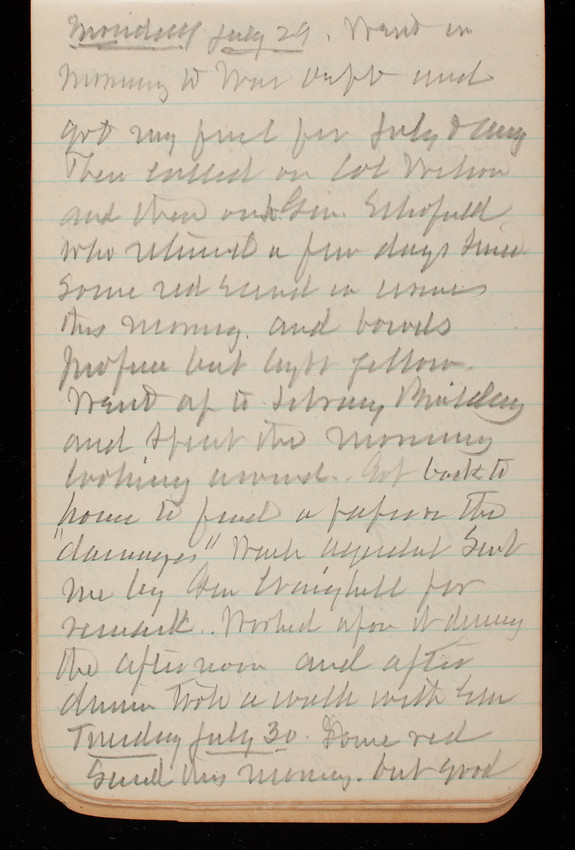 Monday July 29. Went in
morning to War Dept and
got my pay for July & Aug
Then called on Col Wilson
and then on Gen. Schofield
who returned a few days since
Some red sand in urine
this morning. and bowels
profuse but light yellow.
Went up to Library Building
and spent the morning
looking around. Got back to
house to find a paper on the
"damages" Wash aqueduct Sent
me by Gen Craighill for
remark. Worked upon it during
the afternoon and after
dinner took a walk with
Tuesday July 30. Some red
Sand this morning. but good